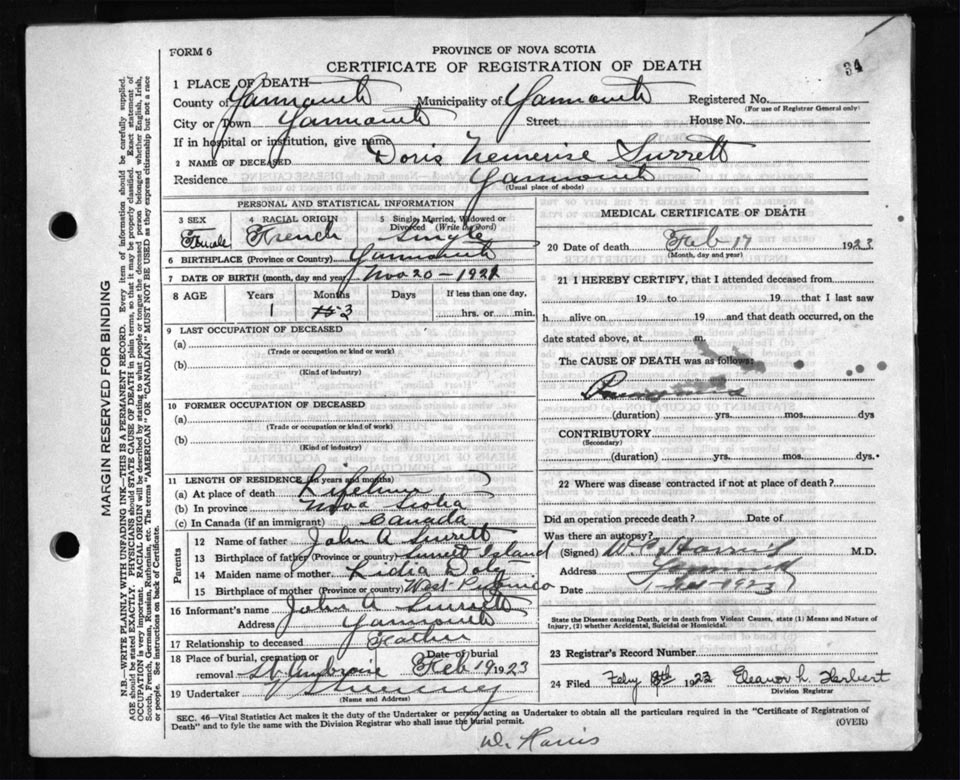 34
FORM 6
PROVINCE OF NOVA SCOTIA
CERTIFICATE OF REGISTRATION OF DEATH
1 PLACE OF DEATH
County of Yarmouth Municipality of Yarmouth Registered No.
(For use of Registrar General only)
City or Town Yarmouth Street House No.
If in hospital or institution, give name
2 NAME OF DECEASED Doris Nemerise Surrett
Residence Yarmouth
(Usual place of abode)
PERSONAL AND STATISTICAL INFORMATION
3 SEX 4 RACIAL ORIGIN 5 Single, Married, Widowed or Divorced (Write the word)
Female French Single
6 BIRTHPLACE (Province or Country) Yarmouth
7 DATE OF BIRTH (month, day and year) Nov 20 - 1921
8 AGE Years Months Days If less than one day,
1 3 hrs. or min.
9 LAST OCCUPATION OF DECEASED
(a)
(Trade or occupation or kind or work)
(b)
(Kind of industry)
10 FORMER OCCUPATION OF DECEASED
(a)
(Trade or occupation or kind of work)
(b)
(Kind of industry)
11 LENGTH OF RESIDENCE (in years and months)
(a) At place of death Lifetime
(b) In province Nova Scotia
(c) In Canada (if an immigrant) Canada
Parents
12 Name of father John A Surrett
13 Birthplace of father (Province or country) Surrett Island
14 Maiden name of mother Lidia Doty
15 Birthplace of mother (Province or country) West Pubnico
16 Informant's name John A Surrett
Address Yarmouth
17 Relationship to deceased Father
18 Place of burial, cremation or removal St Ambroise Date of burial Feb 19 1923
19 Undertaker
(Name and Address)
MEDICAL CERTIFICATE OF DEATH
20 Date of death Feb 17 1923
(Month, day and year)
21 I HEREBY CERTIFY, that I attended deceased from
19 to 19 that I last saw
h alive on 19 and that death occurred, on the
date stated above, at m.
The CAUSE OF DEATH was as follows:
(duration) yrs. mos. dys
CONTRIBUTORY
(Secondary)
(duration) yrs. mos. dys.
22 Where was disease contracted if not at place of death?
Did an operation precede death? Date of
Was there an autopsy?
(Signed) W. C. Harris M.D.
Address Yarmouth
Date 1923
State the Disease causing Death, or in death from Violent Causes, state (1) Means and Nature of
Injury, (2) whether Accidental, Suicidal or Homicidal.
23 Registrar's Record Number
24 Filed Feby 1923 Eleanor L. Herbert
Division Registrar
SEC. 46—Vital Statistics Act makes it the duty of the Undertaker or person acting as Undertaker to obtain all the particulars required in the "Certificate of Registration of
Death" and to fyle the same with the Division Registrar who shall issue the burial permit.
(OVER)
Dr Harris
MARGIN RESERVED FOR BINDING
N.B.—WRITE PLAINLY WITH UNFADING INK—THIS IS A PERMANENT RECORD. Every item of information should be carefully supplied.
AGE should be stated EXACTLY. PHYSICIANS should STATE CAUSE OF DEATH in plain terms, so that it may be properly classified. Exact statement of
OCCUPATION is very important. RACIAL ORIGIN will be described by stating to what people or tongue the deceased person belonged whether English, Irish,
Scotch, French, German, Russian, Ruthenian, etc. The terms "AMERICAN" OR "CANADIAN" MUST NOT BE USED as they express citizenship but not a race
or people. See instructions on back of Certificate.